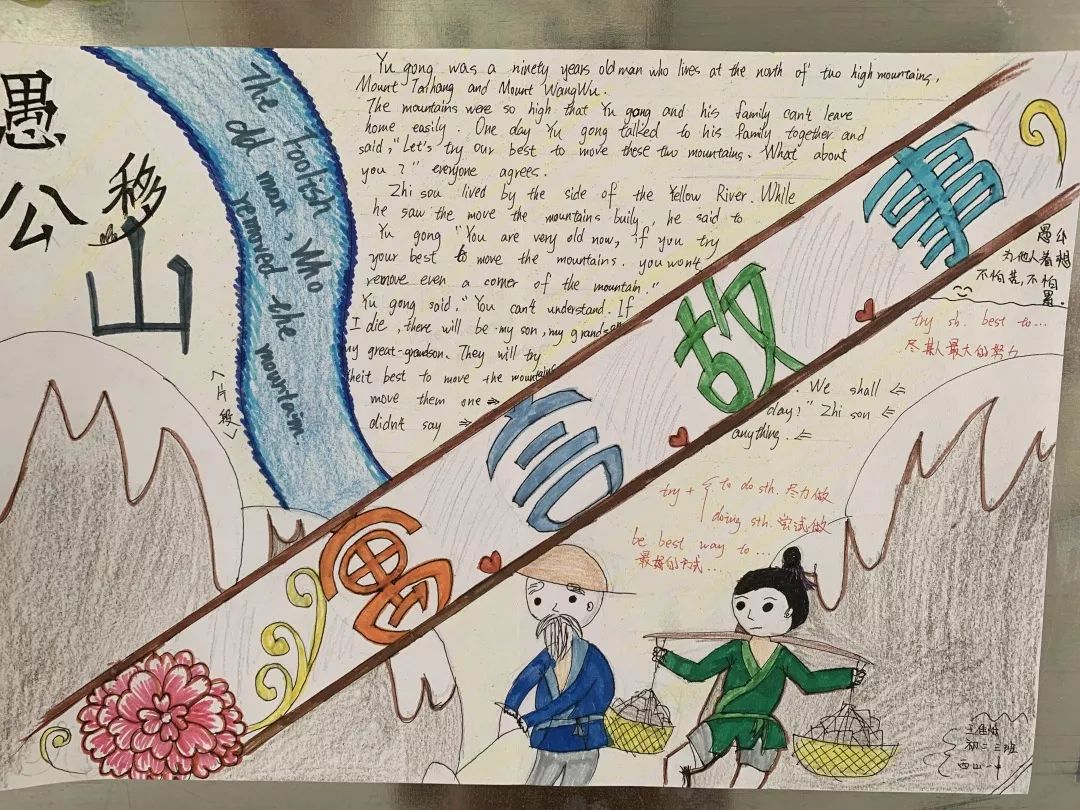 愚公移山
The foolish, Who
old man, removed the mountain.
<片段>
Yu gong was a ninety years old man who lives at the north of two high mountains,
Mount Taihang and Mount WangWu.
The mountains were so high that Yu gong and his family can't leave
home easily. One day Yu gong talked to his family together and
said, "Let's try our best to move these two mountains. What about
you?" everyone agrees.
Zhi sou lived by the side of the Yellow River. While
he saw the move the mountains buily, he said to
Yu gong "You are very old now, if you try
your best to move the mountains. you won't
remove even a corner of the mountain."
Yu gong said. "You can't understand. If
I die, there will be my son, my grandson
my great-grandson. They will try
theit best to move the mountain
move them one ⇒
didn't say ⇒
. We shall ⇐
day!" Zhi sou ⇐
anything. ⇐
寓言故事
愚公
为他人着想
不怕苦,不怕
累.
try sb. best to...
尽某人最大的努力
try + { to do sth. 尽力做
doing sth. 尝试做
be best way to...
最好的方式...
初二三班
西山一中